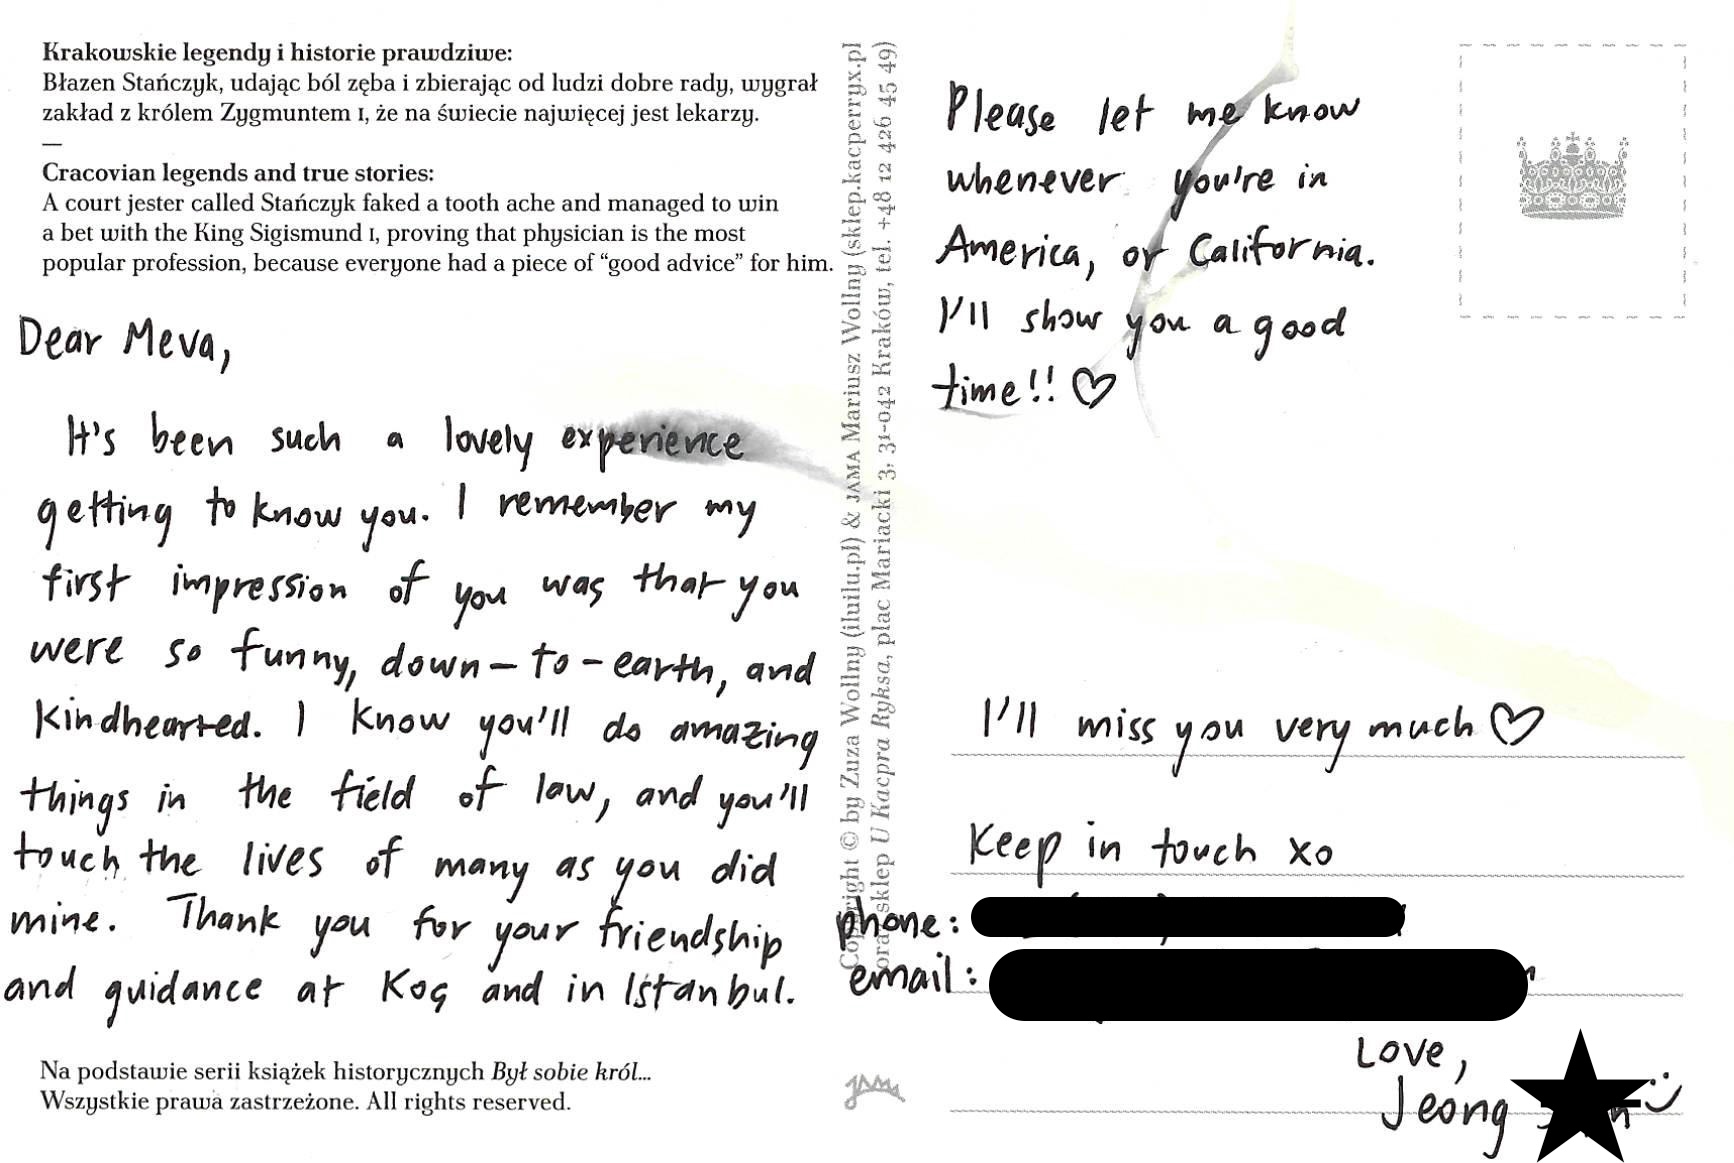 Krakowskie legendy i historie prawdziwe:
Błazen Stańczyk, udając ból zęba i zbierając od ludzi dobre rady, wygrał
zakład z królem Zygmuntem I, że na świecie najwięcej jest lekarzy.
—
Cracovian legends and true stories:
A court jester called Stańczyk faked a tooth ache and managed to win
a bet with the King Sigismund I, proving that physician is the most
popular profession, because everyone had a piece of “good advice” for him.
Dear Meva,
It's been such a lovely experience
getting to know you. I remember my
first impression of you was that you
were so funny, down-to-earth, and
kindhearted. I know you'll do amazing
things in the field of law, and you'll
touch the lives of many as you did
mine. Thank you for your friendship
and guidance at Koç and in Istanbul.
Na podstawie serii książek historycznych Był sobie król...
Wszystkie prawa zastrzeżone. All rights reserved.
Copyright © by Zuza Wollny (iluilu.pl) & JAMA Mariusz Wollny (sklep.kacperryx.pl
oraz sklep U Kacpra Ryksa, plac Mariacki 3, 31-042 Kraków, tel. +48 12 426 45 49)
Please let me know
whenever you're in
America, or California.
I'll show you a good
time!! ♡
I'll miss you very much ♡
Keep in touch xo
phone:
email:
Love,
Jeong
JAMA